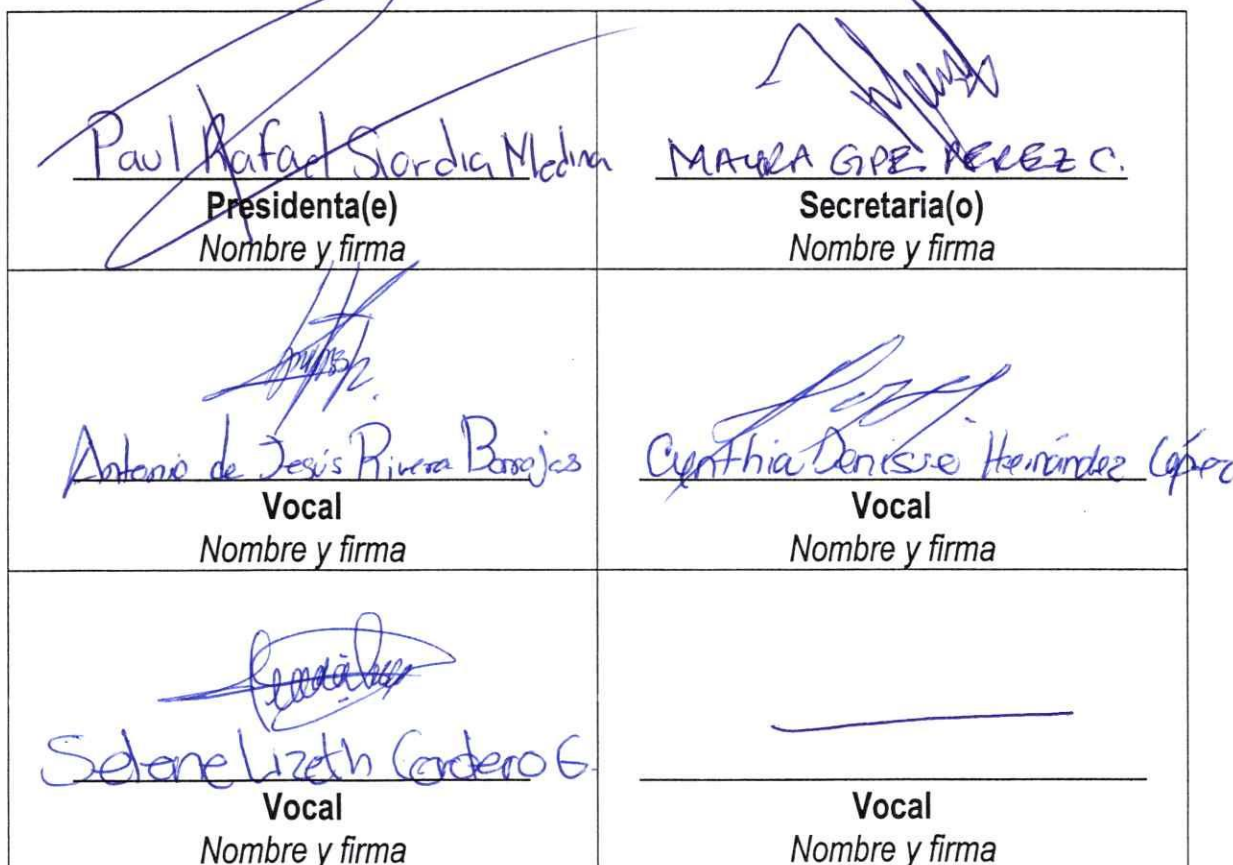 Paul Rafael Siordia Medina
Presidenta(e)
Nombre y firma
MAYRA GPE. PEREZ C.
Secretaria(o)
Nombre y firma
Antonio de Jesús Rivera Barajas
Vocal
Nombre y firma
Cynthia Denisse Hernández López
Vocal
Nombre y firma
Selene Lizeth Cordero G.
Vocal
Nombre y firma
Vocal
Nombre y firma